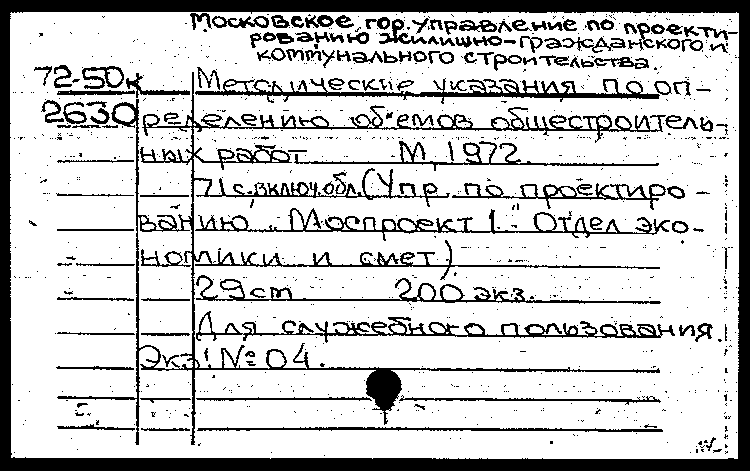 Московское гор. управление по проекти-
рованию жилищно-гражданского и
коммунального строительства.
72-50к Методические указания по оп-
2630 ределению об"емов общестроитель-
ных работ М, 1972
71 с. включ. обл. (Упр. по проектиро-
ванию "Моспроект 1" Отдел эко-
номики и смет)
29 cm 200 экз.
Для служебного пользования.
Экз! № 04.